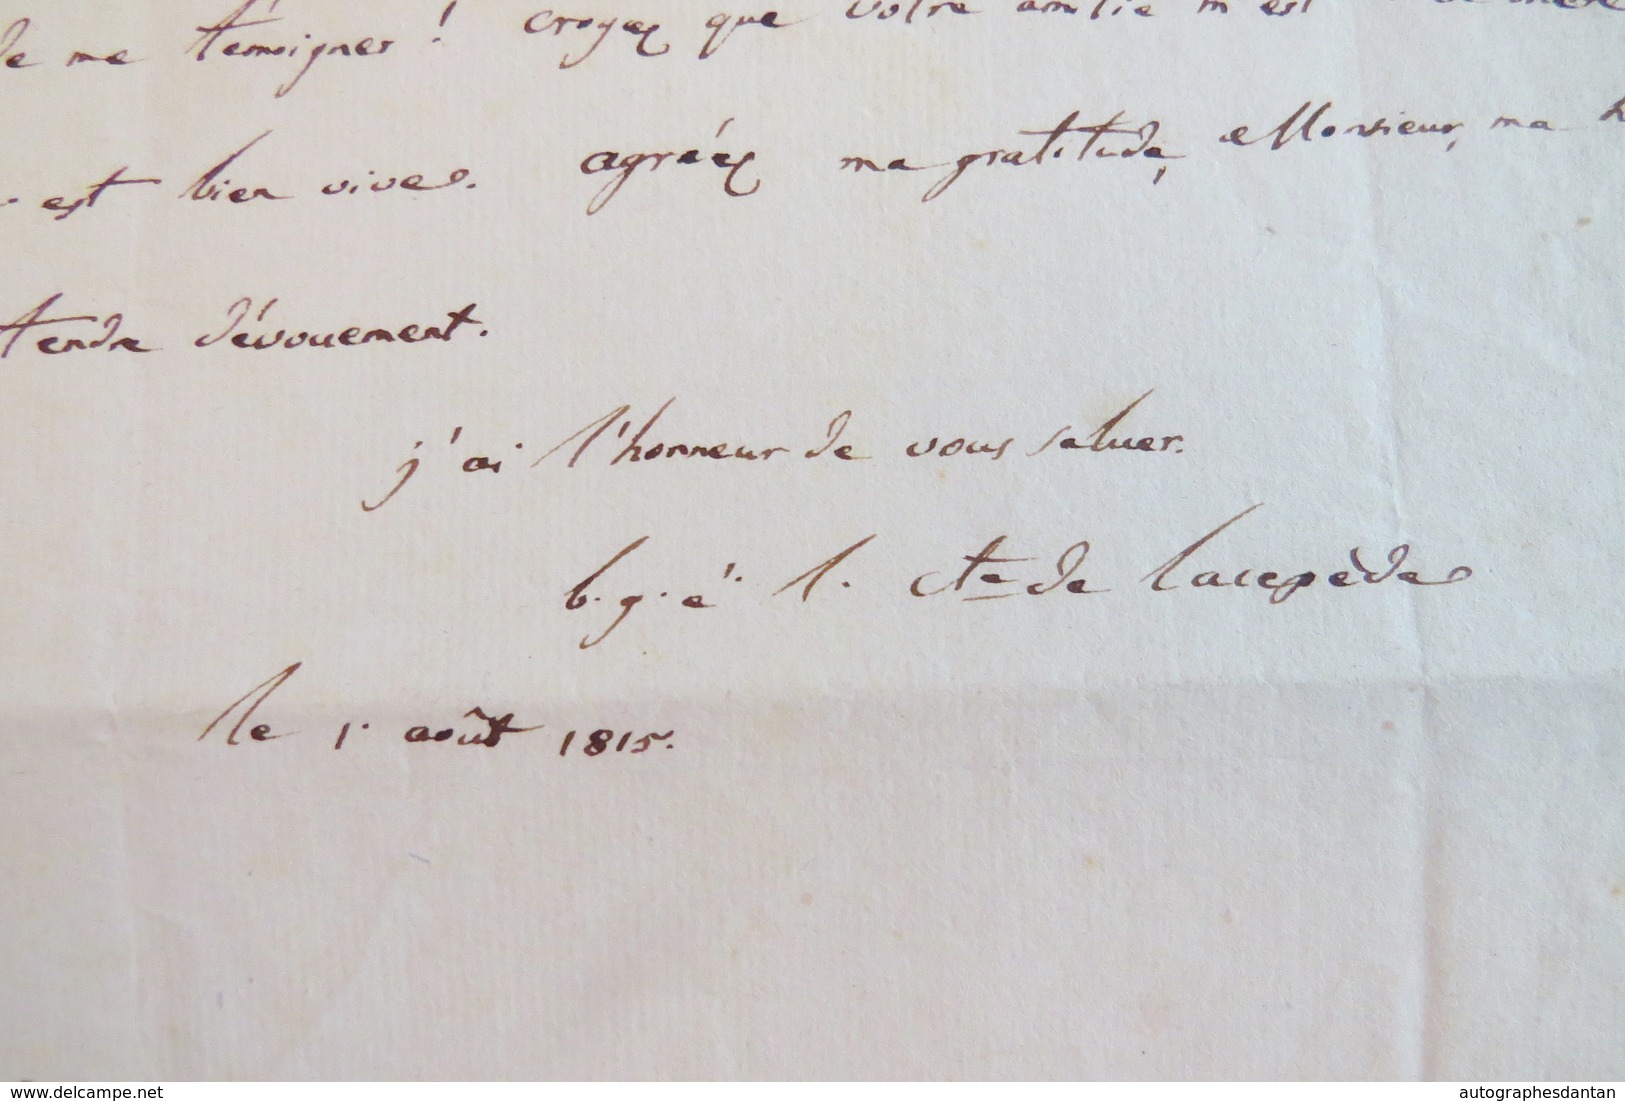 de me témoigner ! croyez que votre amitié m'est
est bien vive. agréez ma gratitude, Monsieur, ma
tendre dévouement.
j'ai l'honneur de vous saluer.
b. g. é. l. cte de lacepède
le 1. août 1815.
www.delcampe.net
autographesdantan